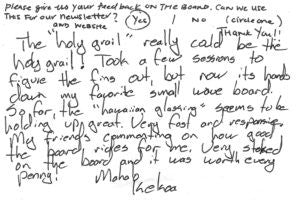 Please give us your feedback on the board. Can we use
this for our newsletter? (Yes) / No (circle one)
and website Thank you!!
The "holy grail" really could be the
holy grail! Took a few sessions to
figure the fins out, but now its hands
down my favorite small wave board.
So far, the "hawaiian glassing" seems to be
holding up great. Very fast and responsive.
My friends commenting on how good
the board rides for me. Very stoked
on the board and it was worth every
penny! Mahalo
Kekoa